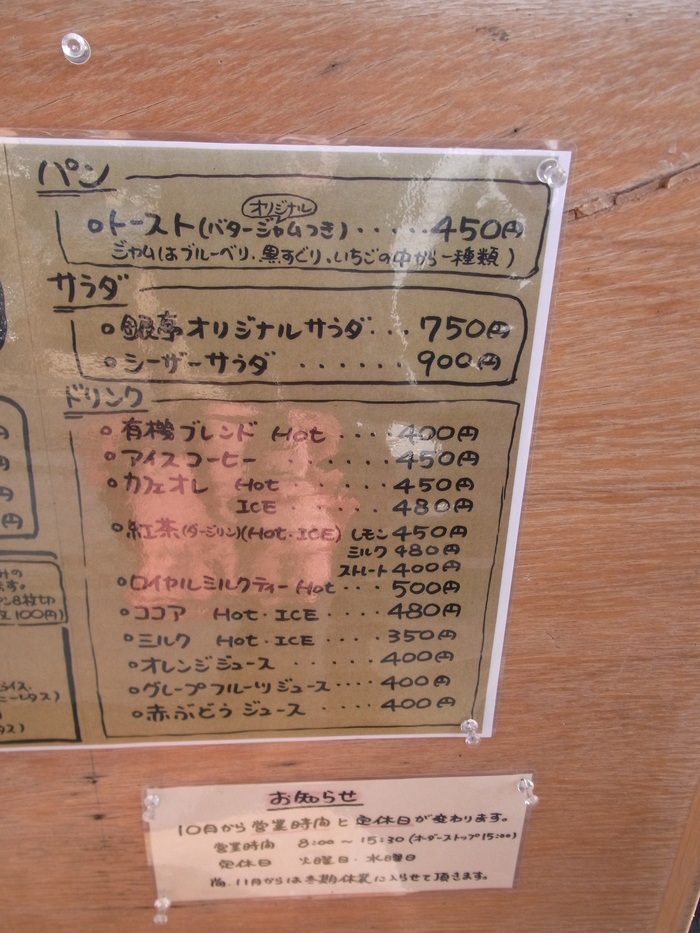 パン
オリジナル
○トースト(バタージャムつき)‥‥‥450円
ジャムはブルーベリ、黒すぐり、いちごの中から一種類)
サラダ
○銀亭オリジナルサラダ‥‥750円
○シーザーサラダ ‥‥‥900円
ドリンク
○有機ブレンド Hot ‥‥400円
○アイスコーヒー ‥‥‥450円
○カフェオレ Hot ‥‥‥450円
ICE ‥‥‥480円
○紅茶(ダージリン)(Hot・ICE) レモン 450円
ミルク 480円
ストレート 400円
○ロイヤルミルクティー Hot‥‥500円
○ココア Hot・ICE ‥‥480円
○ミルク Hot・ICE ‥‥350円
○オレンジジュース ‥‥‥400円
○グレープフルーツジュース‥‥400円
○赤ぶどうジュース ‥‥‥400円
円
円
円
円
ン8枚切
100円)
ライス、
ニーレタス)
お知らせ
10月から営業時間と定休日が変わります。
営業時間 8:00〜15:30(オーダーストップ15:00)
定休日 火曜日・水曜日
尚、11月からは冬期休業に入らせて頂きます。